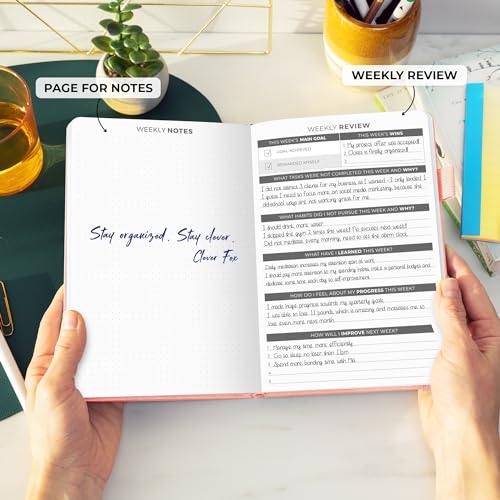 PAGE FOR NOTES
WEEKLY REVIEW
WEEKLY NOTES
Stay organized. Stay clever.
Clever Fox
WEEKLY REVIEW
THIS WEEK'S MAIN GOAL
GOAL ACHIEVED
REWARDED MYSELF
THIS WEEK'S WINS
1. My project offer was accepted!
2. Closet is finally organized!
3.
WHAT TASKS WERE NOT COMPLETED THIS WEEK AND WHY?
I did not contact 3 clients for my business as I wanted - I only landed 1
I guess I need to focus more on social media marketing, because the
old-school ways are not working great for me.
WHAT HABITS DID I NOT PURSUE THIS WEEK AND WHY?
I should drink more water
I skipped the gym 2 times this week! No excuses next week!
Did not meditate every morning, need to set the alarm clock.
WHAT HAVE I LEARNED THIS WEEK?
Daily meditation increases my attention span at work.
I should pay more attention to my spending habits, make a personal budget and
dedicate some time each day to self-improvement.
HOW DO I FEEL ABOUT MY PROGRESS THIS WEEK?
I made huge progress towards my quarterly goals.
I was able to lose 1.1 pounds, which is amazing and motivates me to
lose even more next month.
HOW WILL I IMPROVE NEXT WEEK?
1. Manage my time more efficiently
2. Go to sleep no later than 11pm
3. Spend more bonding time with Mia
4.
5.